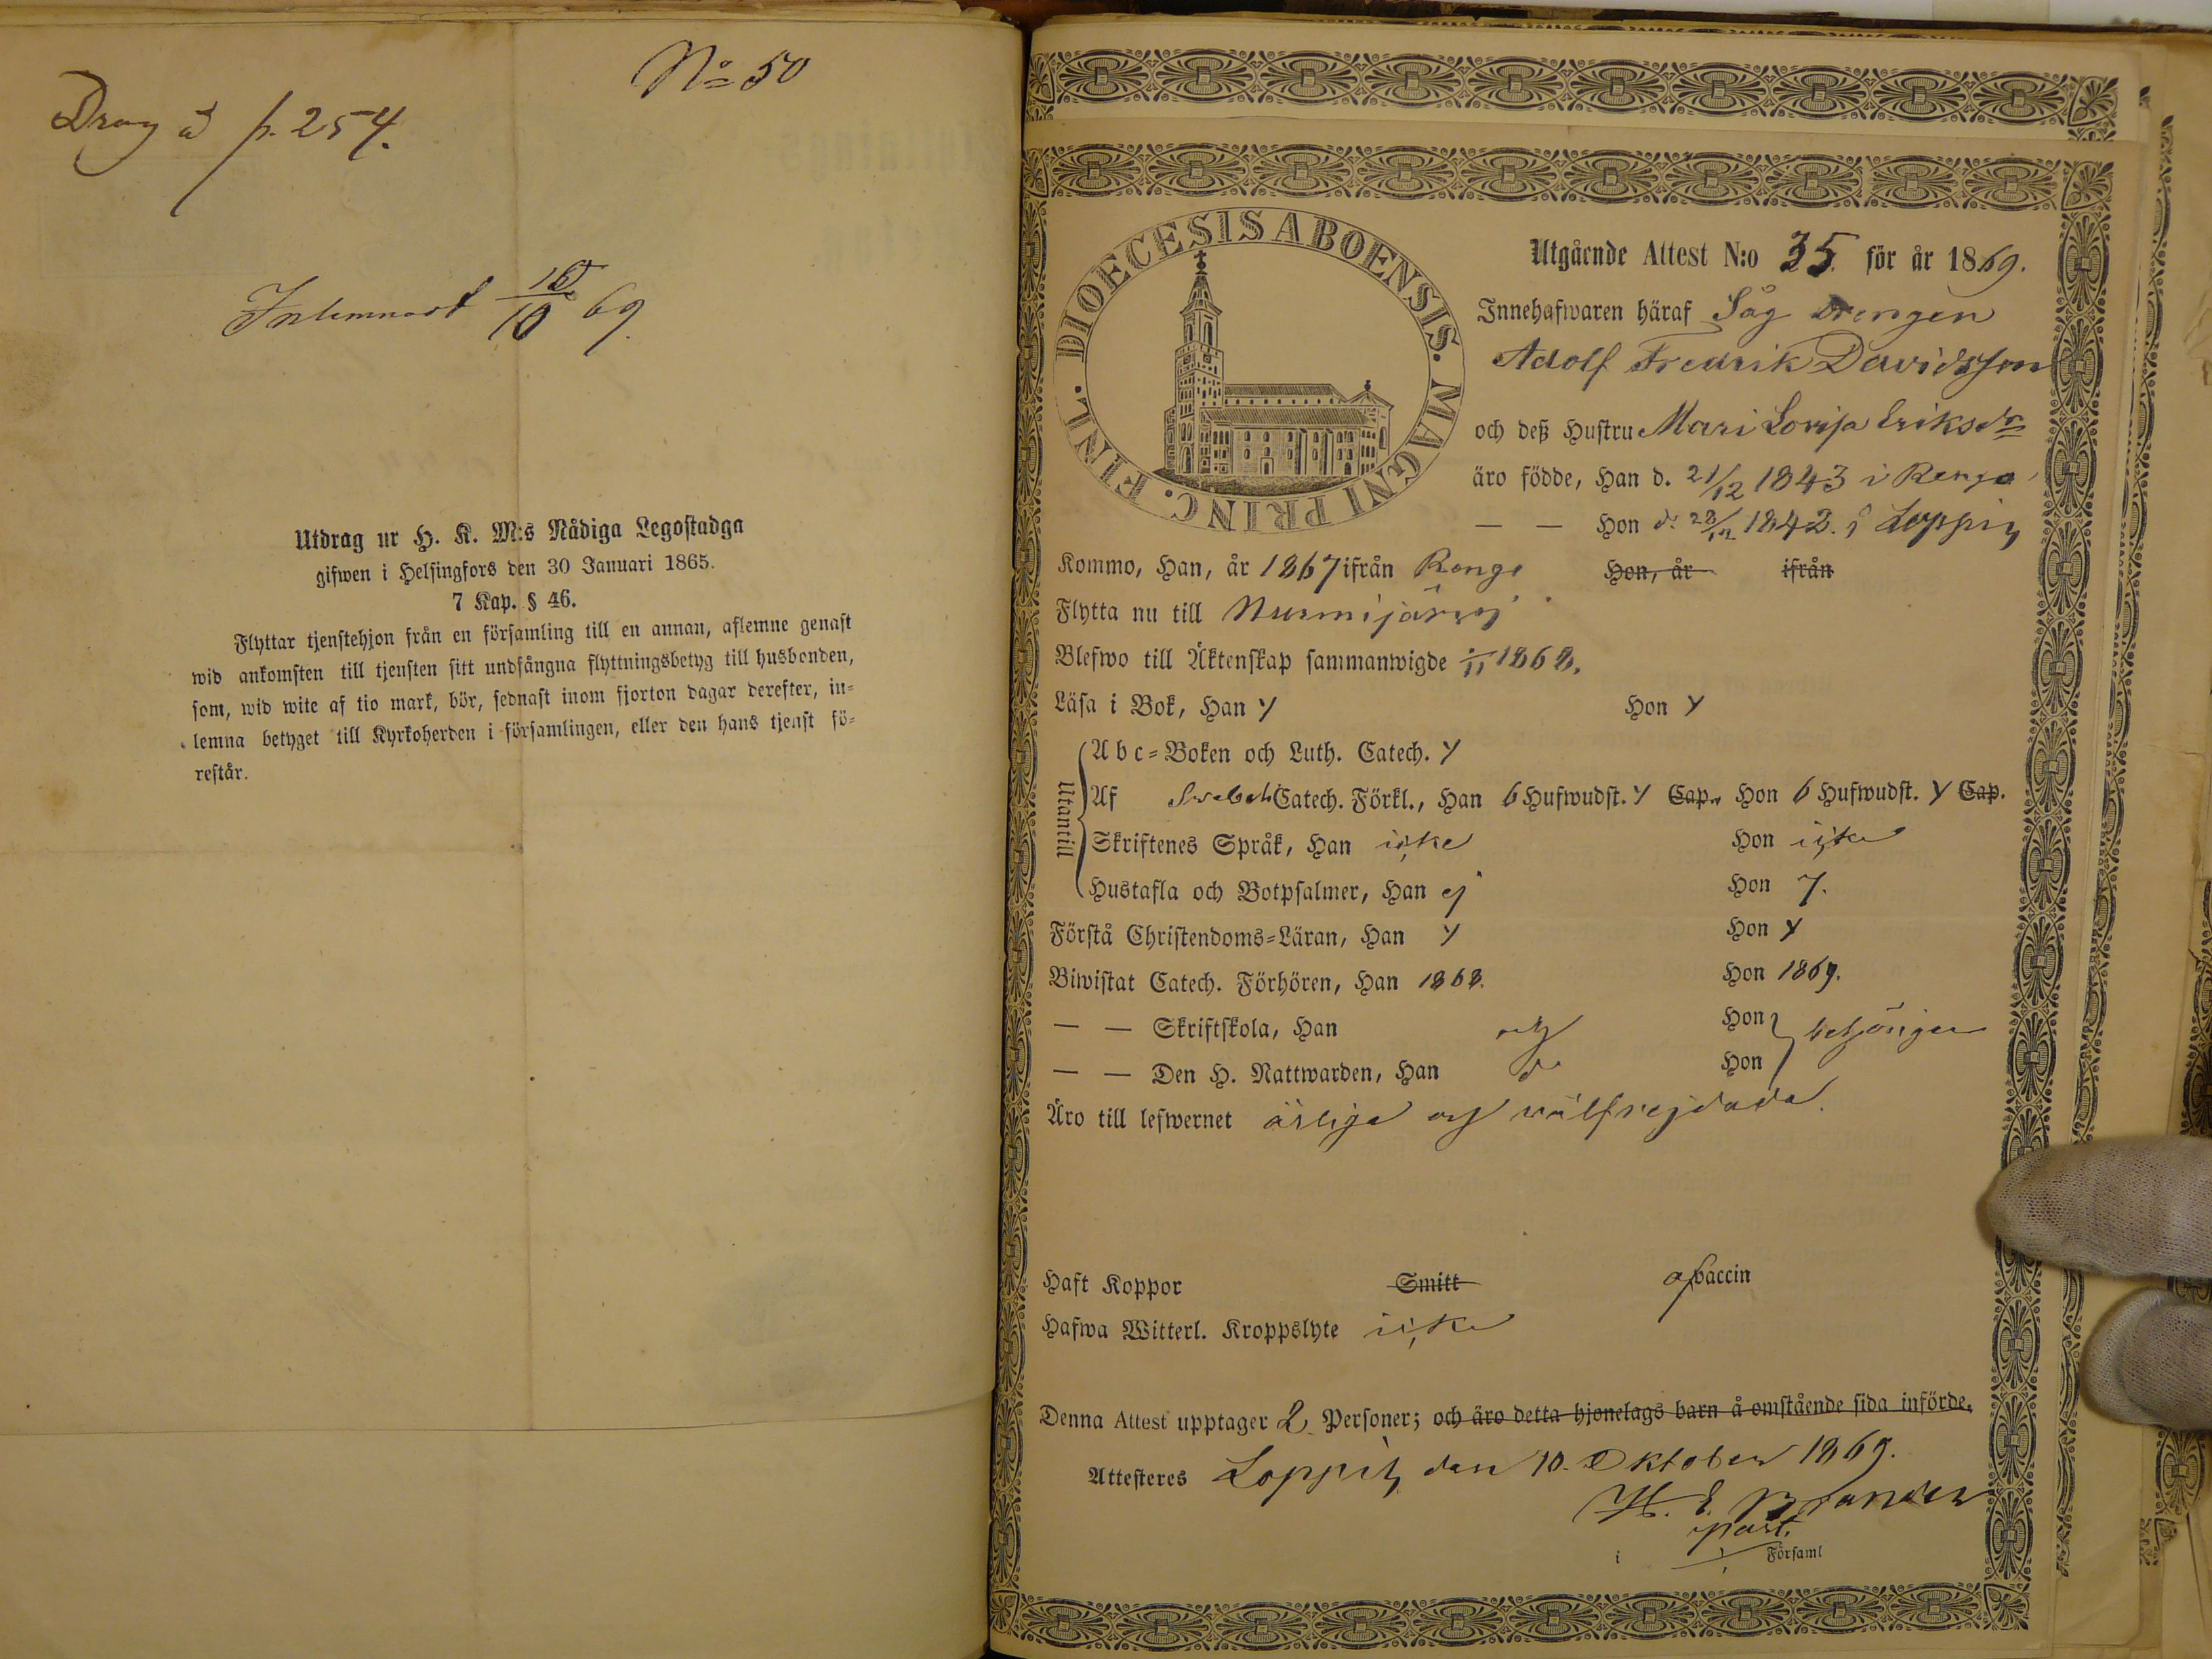 No 50
Drag å p. 254.
Inlemnadt 10/10 69.
Utdrag ur H. K. M:s Nådiga Legostadga
gifwen i Helsingfors den 30 Januari 1865.
7 Kap. § 46.
Flyttar tjenstehjon från en församling till en annan, aflemne genast
wid ankomsten till tjensten sitt undfångna flyttningsbetyg till husbonden,
som, wid wite af tio mark, bör, sednast inom fjorton dagar derefter, in-
lemna betyget till Kyrkoherden i församlingen, eller den hans tjenst fö-
restår.
DIOECESIS ABOENSIS. MAGNI PRINC. FINL.
Utgående Attest N:o 35. för år 1869.
Innehafwaren häraf Såg drengen
Adolf Fredrik Davidsson
och deß Hustru Mari Lovisa Eriksdr
äro födde, Han d. 21/12 1843 i Rengo
— — Hon d. 1842. i Loppis
Kommo, Han, år 1867 ifrån Rengo Hon, år ifrån
Flytta nu till Nurmijärvi
Blefwo till Äktenskap sammanwigde 1/11 1868.
Läsa i Bok, Han y Hon y
Utantill
Abc-Boken och Luth. Catech. y
Af Svebel. Catech. Förkl., Han 6 Hufwudst. y Cap., Hon 6 Hufwudst. y Cap.
Skriftenes Språk, Han icke Hon icke
Hustafla och Botpsalmer, Han ej Hon
Förstå Christendoms-Läran, Han y Hon y
Biwistat Catech. Förhören, Han 1868. Hon 1869.
— — Skriftskola, Han och Hon
— — Den H. Nattwarden, Han Hon behörigen
Äro till lefwernet ärliga och välfrejdade.
Haft Koppor Smitt af Vaccin
Hafwa Witterl. Kroppslyte icke
Denna Attest upptager 2 Personer; och äro detta hjonelags barn å omstående sida införde.
Attesteres Loppis den 10. Oktober 1869.
H. E. Brander
past.
i Församl